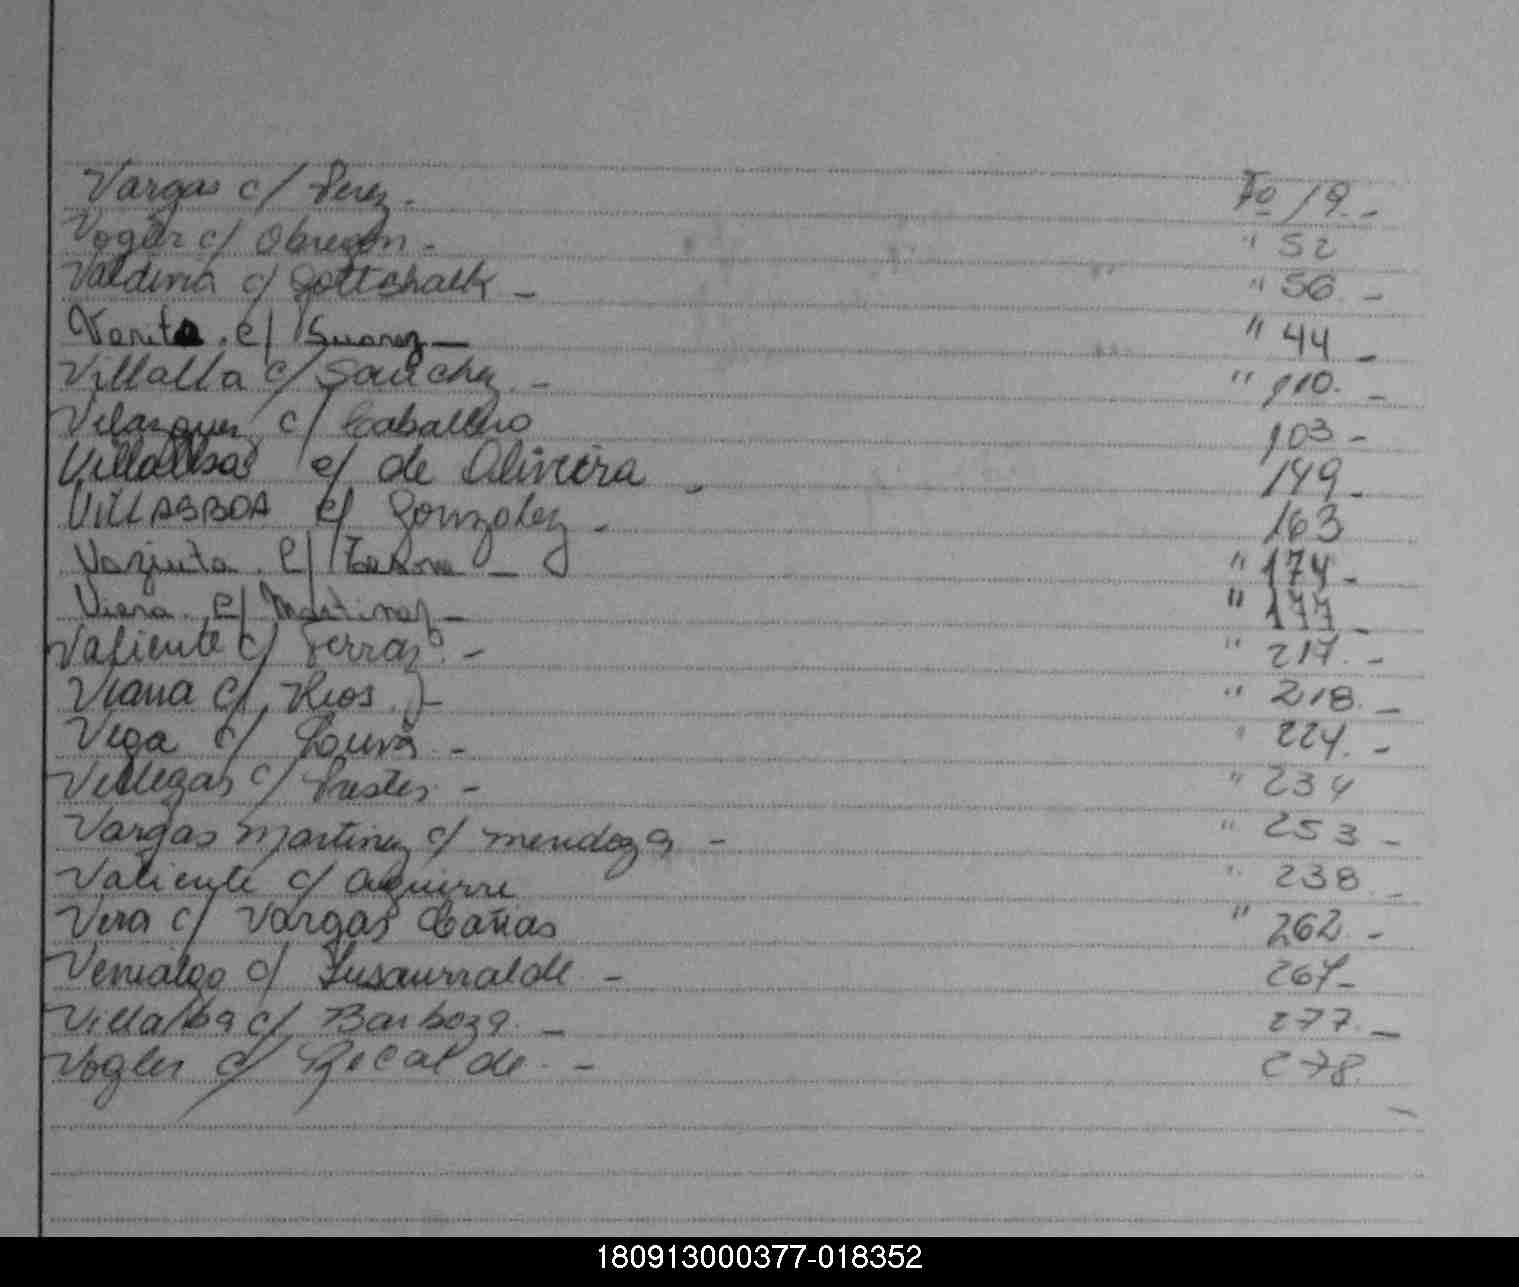 Vargas c/ Perez. Fo 19.-
Vogler c/ Obregon - " 52
Valdivia c/ Gottschalk - " 56. -
Varita. c/ Suarez - " 44 -
Villalba c/ Sanchez. - " 110. -
Velazquez c/ Caballero 103 -
Villalba c/ de Oliveira - 149 -
VILLASBOA c/ Gonzalez - 163
c/ - " 174 -
Viera. c/ Martinez - " 177 -
Valiente c/ Ferraz. - " 217. -
Viana c/ Rios. - " 218. -
Vega c/ - " 224. -
Villegas c/ Prestes. - " 234
Vargas Martinez c/ Mendoza - " 253 -
Valiente c/ Aguirre " 238. -
Vera c/ Vargas Cañas " 262. -
Venialgo c/ Susaurralde - 267 -
Villalba c/ Barboza. - 277. -
Vogler c/ Recalde. - 278.
180913000377-018352